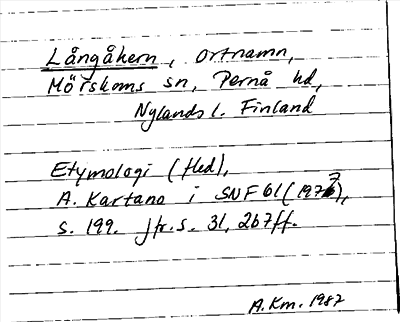 Långåkern, ortnamn,
Mörskoms sn, Pernå hd,
Nylands l. Finland
Etymologi (fled),
A. Kartano i SNF 61 (1973),
s. 199. jfr. s. 31, 267 ff.
A.Km. 1987